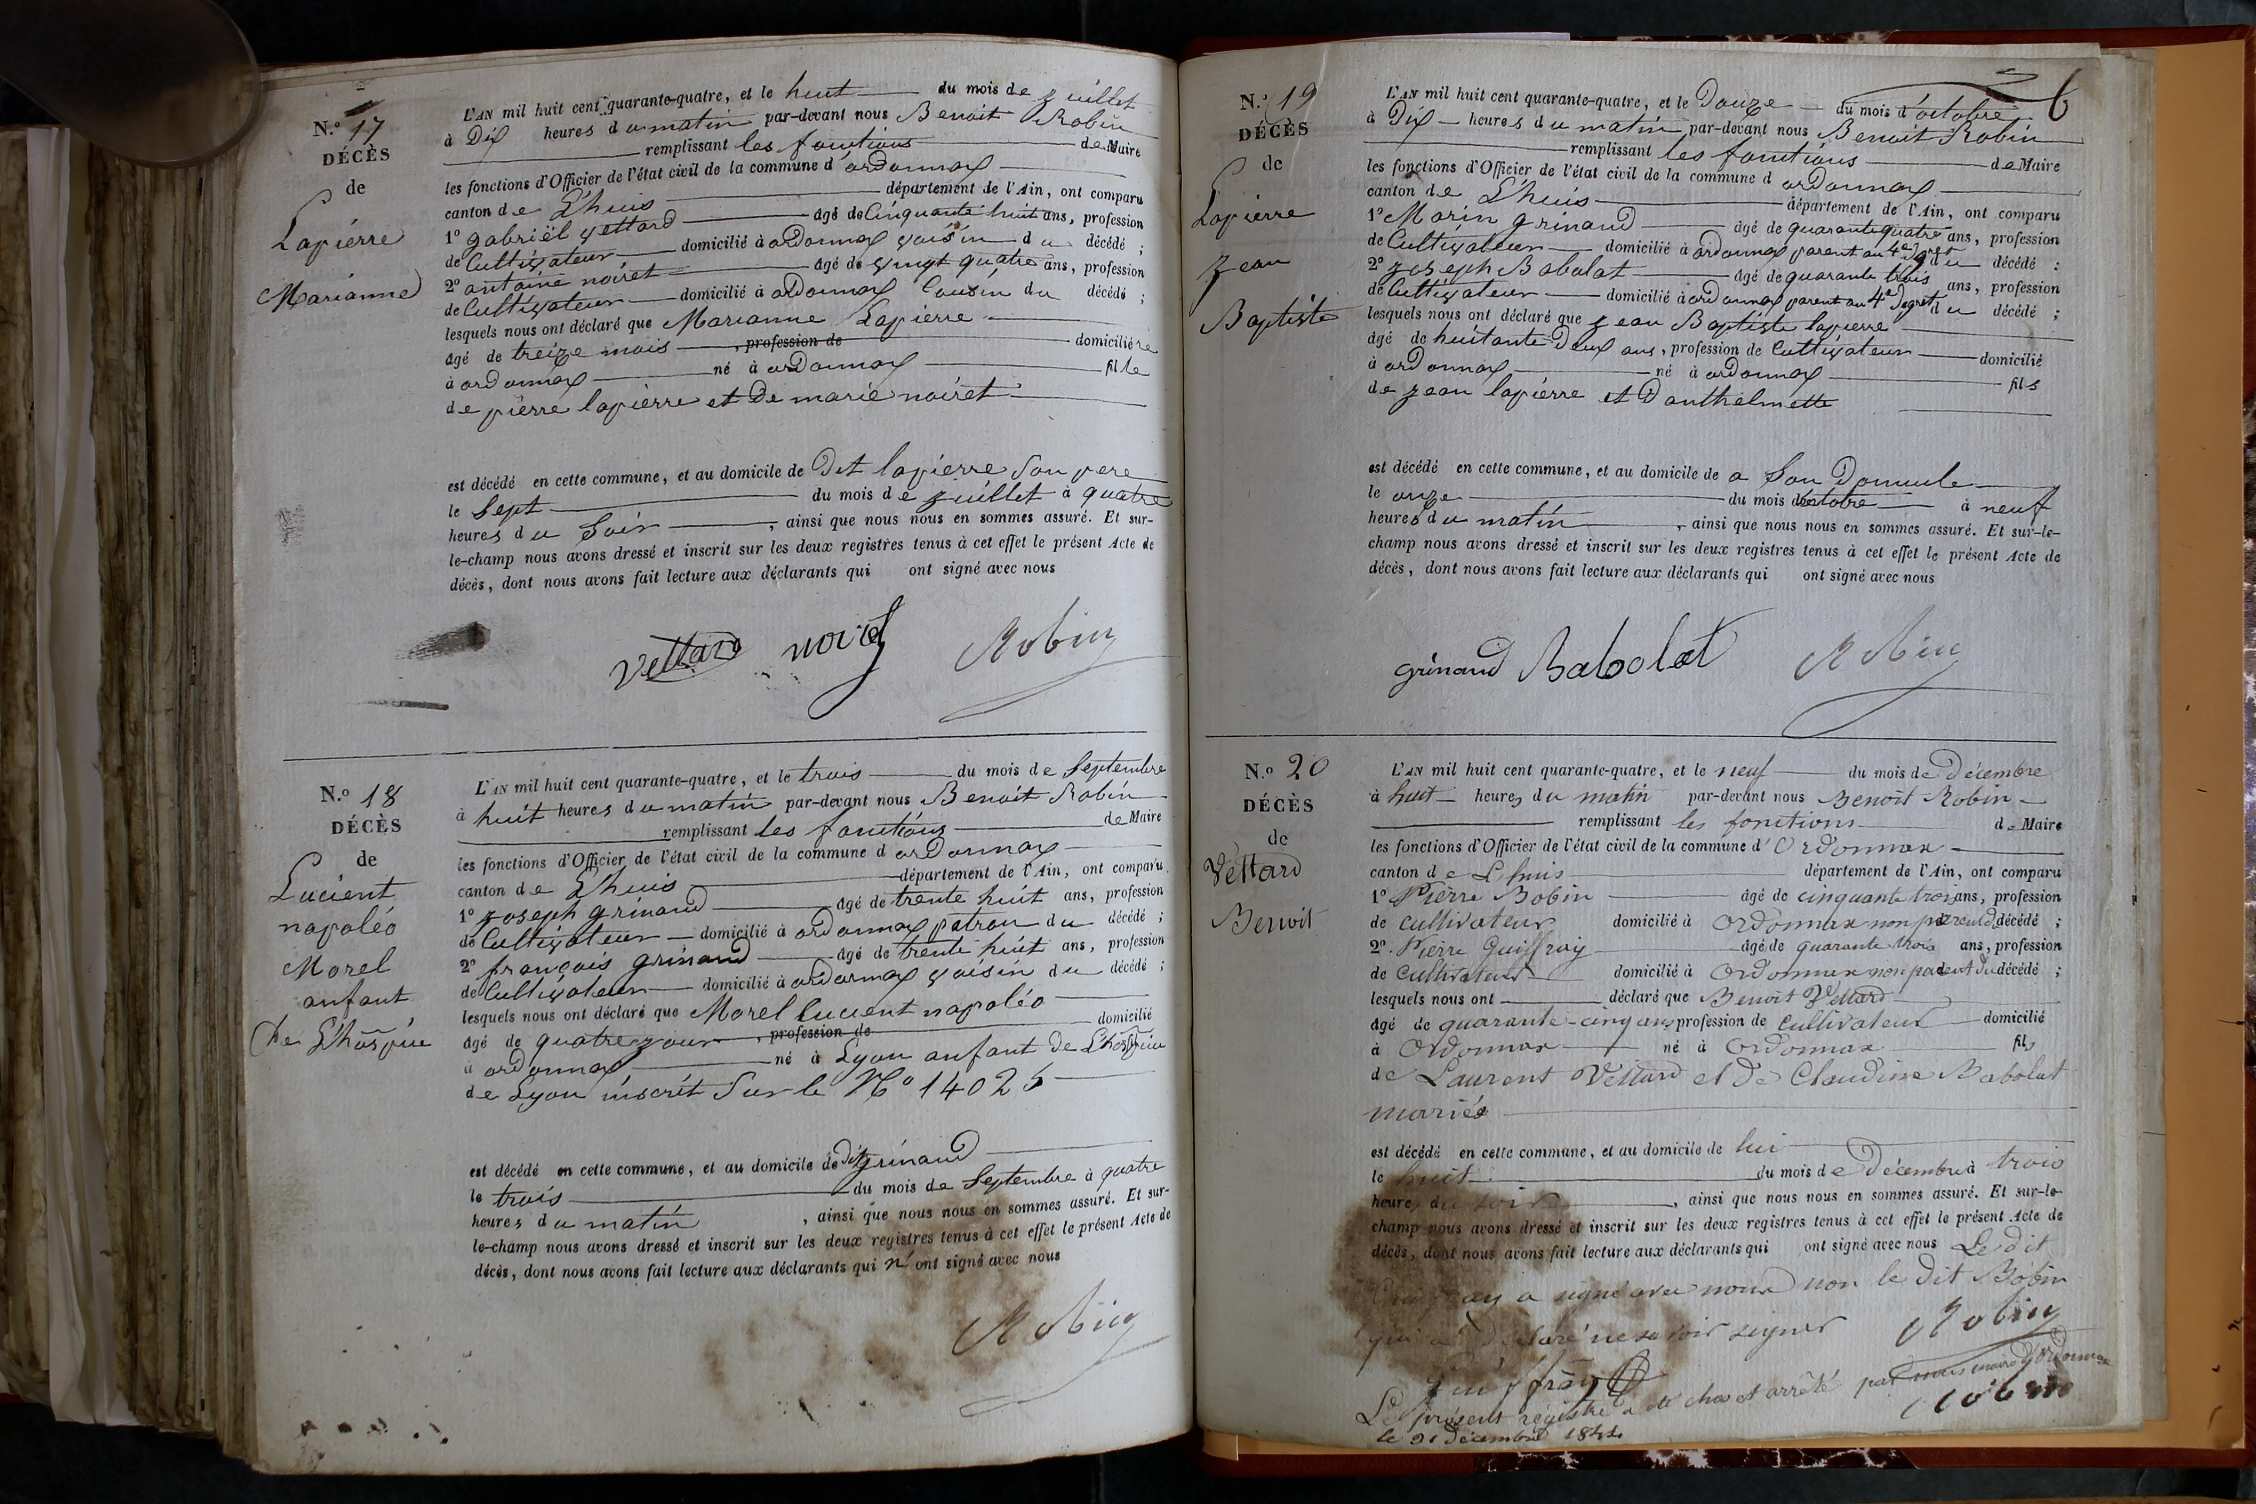 N.º 17
DÉCÈS
de
Lapierre
Marianne
L'AN mil huit cent quarante-quatre, et le huit du mois de juillet
à Dix heures du matin par-devant nous Benoit Robin
remplissant les fonctions de Maire
les fonctions d'Officier de l'état civil de la commune d'ordonnax
canton de L'huis département de l'Ain, ont comparu
1º gabriël vettard âgé de Cinquante huit ans, profession
de Cultivateur domicilié à ordonnax voisin du décédé ;
2º antoine noiret âgé de vingt quatre ans, profession
de Cultivateur domicilié à ordonnax Cousin du décédé ;
lesquels nous ont déclaré que Marianne Lapierre
âgé de treize mois , profession de domicilié
à ordonnax né à ordonnax fille
de pierre lapierre et De marie noiret
est décédé en cette commune, et au domicile de Dit lapierre Son pere
le Sept du mois de juillet à quatre
heures du Soir , ainsi que nous nous en sommes assuré. Et sur-
le-champ nous avons dressé et inscrit sur les deux registres tenus à cet effet le présent Acte de
décès, dont nous avons fait lecture aux déclarants qui ont signé avec nous
Vettard noiret Robin
N.º 18
DÉCÈS
de
Lucient
napoléo
Morel
anfant
De L'hospice
L'AN mil huit cent quarante-quatre, et le trois du mois de Septembre
à huit heures du matin par-devant nous Benoit Robin
remplissant les fonctions de Maire
les fonctions d'Officier de l'état civil de la commune d ordonnax
canton de L'huis département de l'Ain, ont comparu
1º joseph grinand âgé de trente huit ans, profession
de Cultivateur domicilié à ordonnax patron du décédé ;
2º françois grinand âgé de trente huit ans, profession
de Cultivateur domicilié à ordonnax voisin du décédé ;
lesquels nous ont déclaré que Morel lucient napoléo
âgé de quatre jour , profession de domicilié
à ordonnax né à Lyon anfant de L'hospice
de Lyon inscrit Sur le Nº 14025
est décédé en cette commune, et au domicile de dit grinand
le trois du mois de Septembre à quatre
heures du matin , ainsi que nous nous en sommes assuré. Et sur-
le-champ nous avons dressé et inscrit sur les deux registres tenus à cet effet le présent Acte de
décès, dont nous avons fait lecture aux déclarants qui n' ont signé avec nous
Robin
6
N.º 19
DÉCÈS
de
Lapierre
jean
Baptiste
L'AN mil huit cent quarante-quatre, et le Douze du mois d'octobre
à Dix heures du matin par-devant nous Benoit Robin
remplissant les fonctions de Maire
les fonctions d'Officier de l'état civil de la commune d ordonnax
canton de L'huis département de l'Ain, ont comparu
1º Marin grinand âgé de quarante quatre ans, profession
de Cultivateur domicilié à ordonnax parent au 4e degret du décédé ;
2º joseph Babolat âgé de quarante trois ans, profession
de Cultivateur domicilié à ordonnax parent au 4e Degret du décédé ;
lesquels nous ont déclaré que jean Baptiste lapierre
âgé de huitante Deux ans, profession de Cultivateur domicilié
à ordonnax né à ordonnax fils
de jean lapierre et D'anthelmette
est décédé en cette commune, et au domicile de a Son Domicile
le onze du mois d'octobre à neuf
heures du matin , ainsi que nous nous en sommes assuré. Et sur-le-
champ nous avons dressé et inscrit sur les deux registres tenus à cet effet le présent Acte de
décès, dont nous avons fait lecture aux déclarants qui ont signé avec nous
grinand Babolat Robin
N.º 20
DÉCÈS
de
Vettard
Benoit
L'AN mil huit cent quarante-quatre, et le neuf du mois de Décembre
à huit heures du matin par-devant nous Benoît Robin
remplissant les fonctions de Maire
les fonctions d'Officier de l'état civil de la commune d'Ordonnax
canton de Lhuis département de l'Ain, ont comparu
1º Pierre Bobin âgé de cinquante trois ans, profession
de cultivateur domicilié à Ordonnax non parent du décédé ;
2º Pierre Guiffray âgé de quarante trois ans, profession
de Cultivateur domicilié à Ordonnax non parent du décédé ;
lesquels nous ont déclaré que Benoît Vettard
âgé de quarante-cinq ans profession de cultivateur domicilié
à Ordonnax né à Ordonnax fils
de Laurent Vettard et de Claudine Babolat
mariés
est décédé en cette commune, et au domicile de lui
le huit du mois de Décembre à trois
heures du soir , ainsi que nous nous en sommes assuré. Et sur-le-
champ nous avons dressé et inscrit sur les deux registres tenus à cet effet le présent Acte de
décès, dont nous avons fait lecture aux déclarants qui ont signé avec nous Le dit
Guiffray a signé avec nous non le dit Bobin
qui a déclaré ne savoir signer Robin
guiffray
Le présent registre a été clos et arrêté par nous maire d'Ordonnax
le 31 décembre 1844 Robin